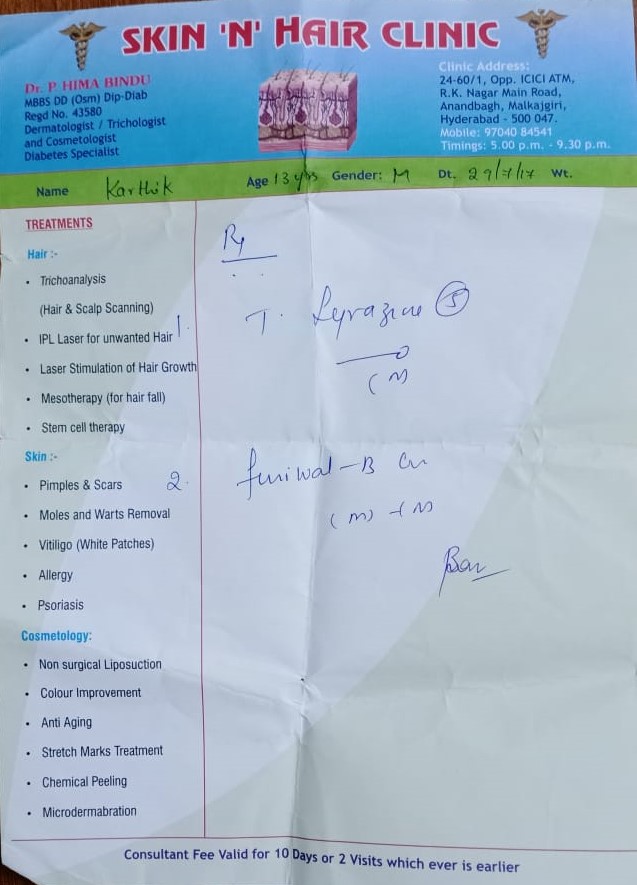 SKIN 'N' HAIR CLINIC
Dr. P. HIMA BINDU
MBBS DD (Osm) Dip-Diab
Regd No. 43580
Dermatologist / Trichologist
and Cosmetologist
Diabetes Specialist
Clinic Address:
24-60/1, Opp. ICICI ATM,
R.K. Nagar Main Road,
Anandbagh, Malkajgiri,
Hyderabad - 500 047.
Mobile: 97040 84541
Timings: 5.00 p.m. - 9.30 p.m.
Name Karthik Age 13 yrs Gender: M Dt. 29/7/17 Wt.
TREATMENTS
Hair :-
• Trichoanalysis
(Hair & Scalp Scanning)
• IPL Laser for unwanted Hair
• Laser Stimulation of Hair Growth
• Mesotherapy (for hair fall)
• Stem cell therapy
Skin :-
• Pimples & Scars
• Moles and Warts Removal
• Vitiligo (White Patches)
• Allergy
• Psoriasis
Cosmetology:
• Non surgical Liposuction
• Colour Improvement
• Anti Aging
• Stretch Marks Treatment
• Chemical Peeling
• Microdermabration
Rx
1. T. 5
(N)
2. -B
(M) - (N)
Consultant Fee Valid for 10 Days or 2 Visits which ever is earlier